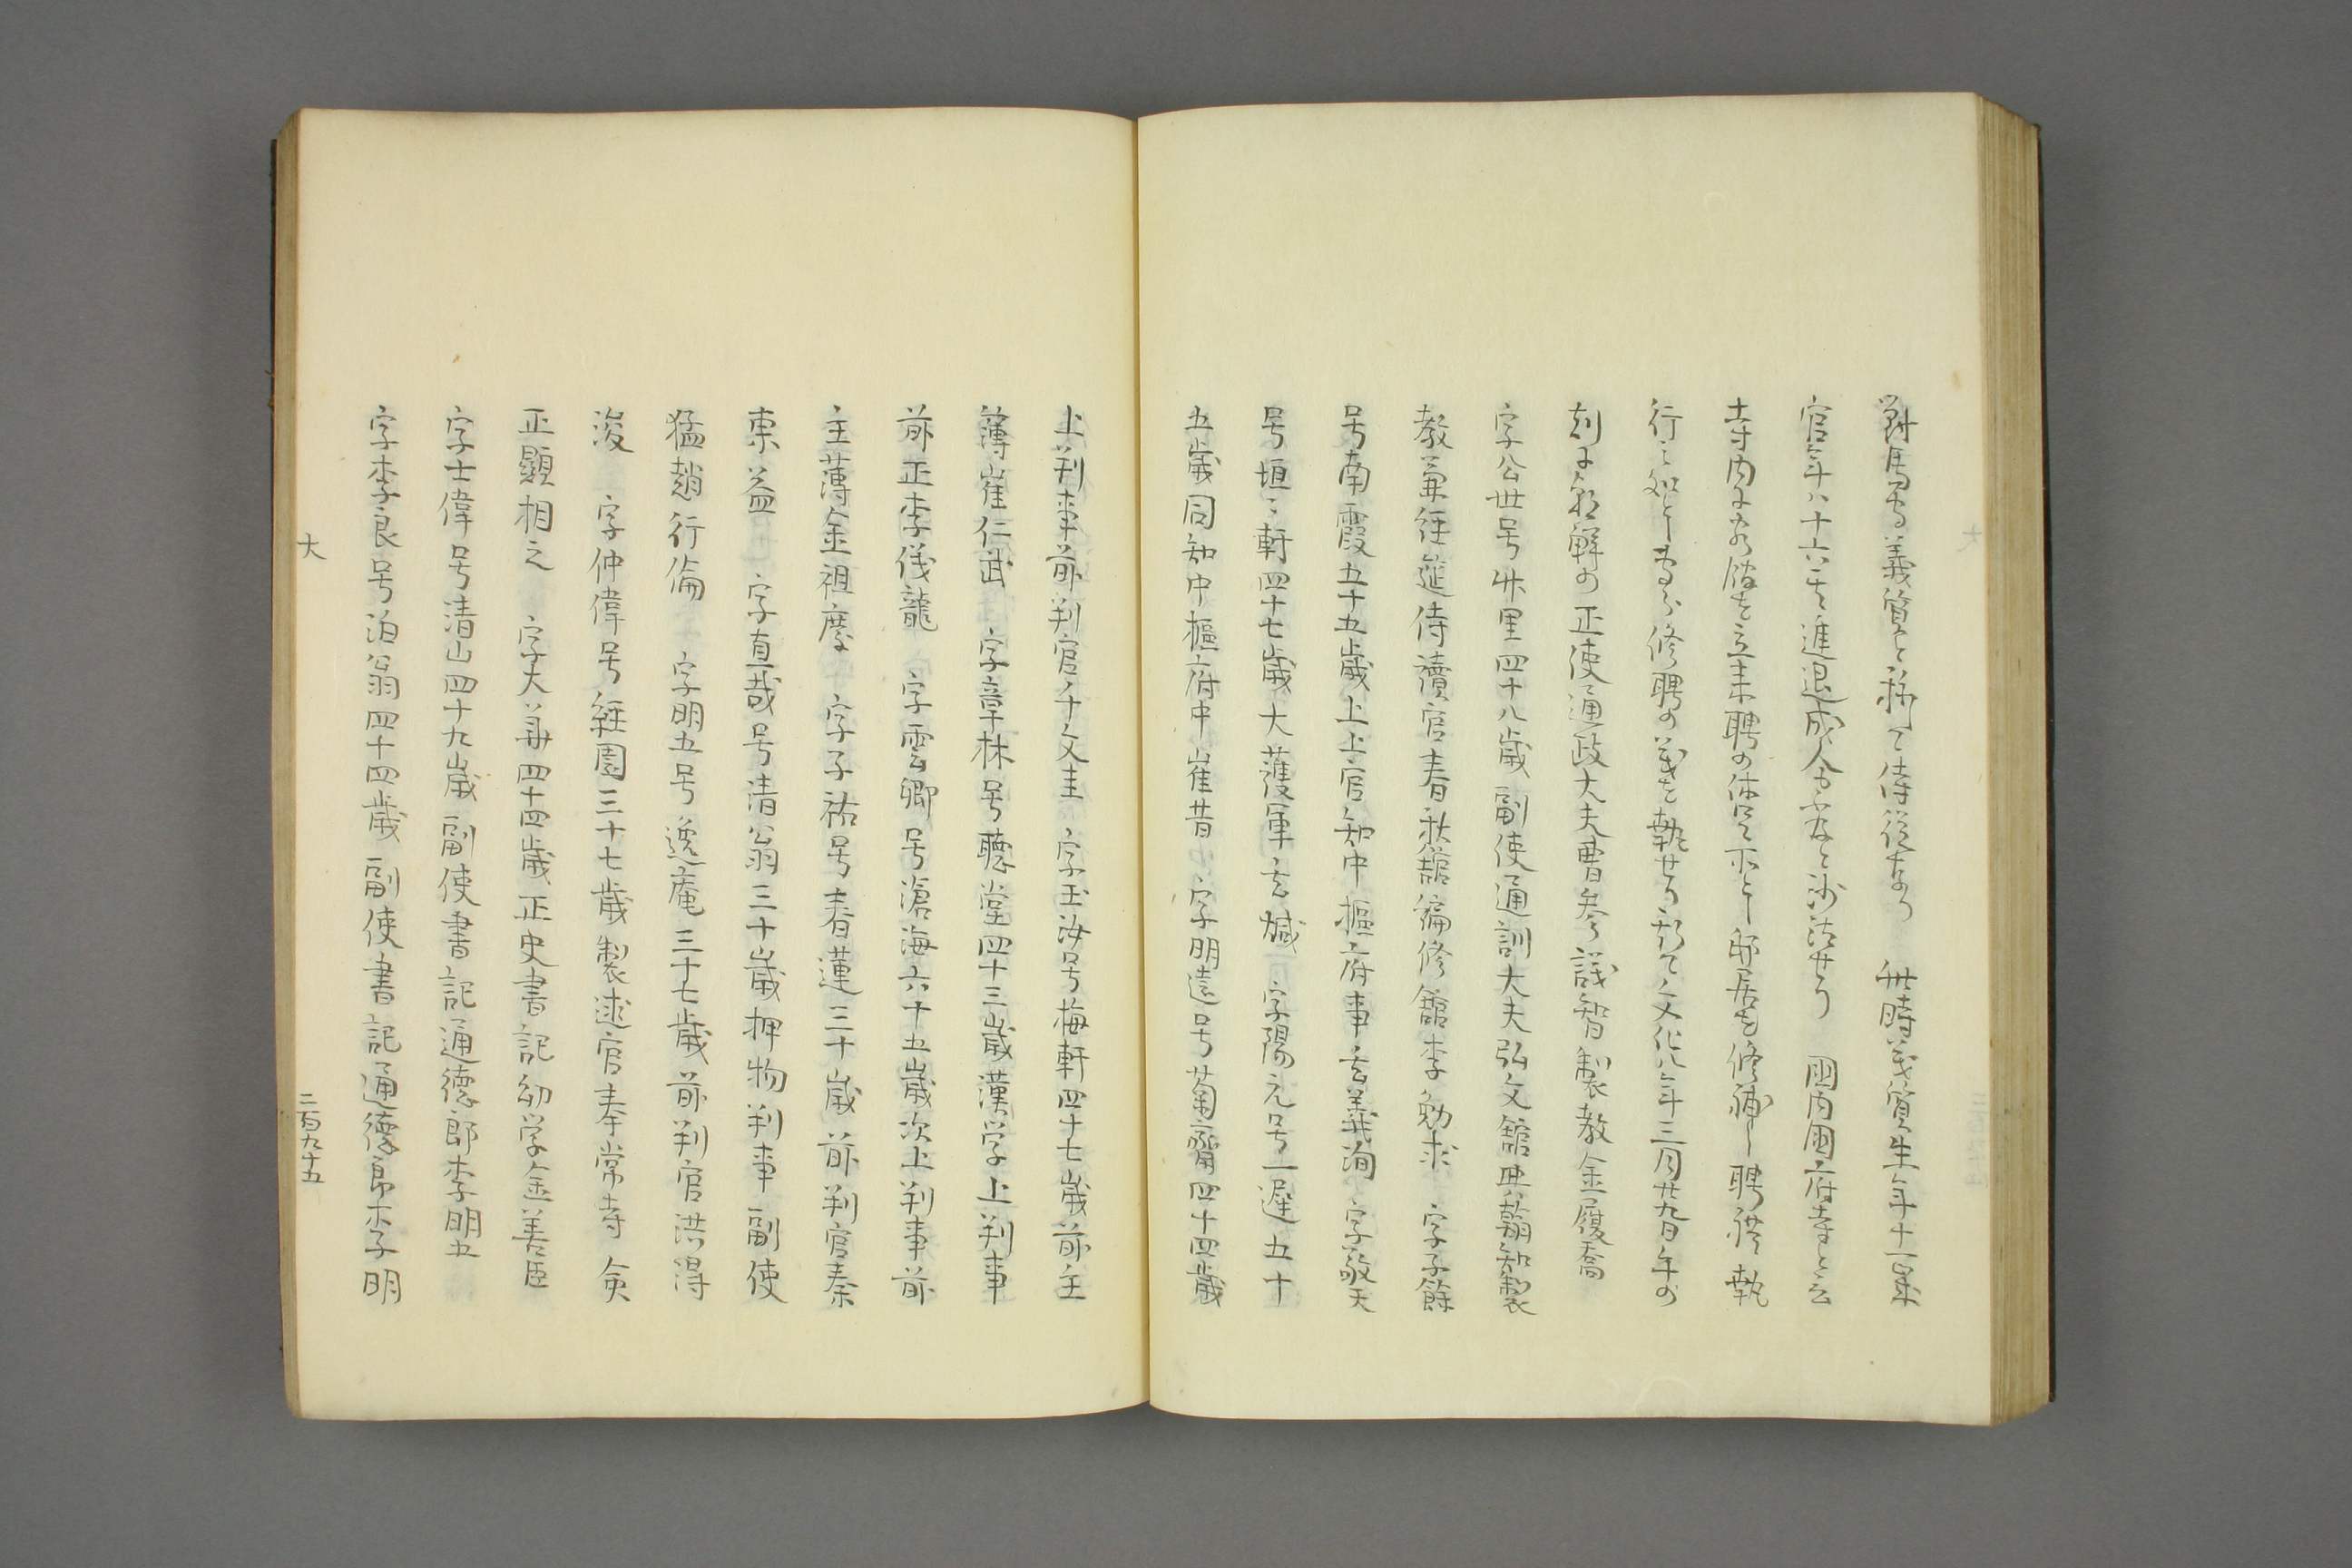 對馬守義質と称て侍従なり 此時義質生年十一歳
官年八十六にて進退成人も及と沙汰せり 国内国府寺と云
寺内に客館を立来聘の休息所とし邸居を修補し聘礼執
行之如し 修聘の義を執せる 文化八年三月廿九日午の
刻に 正使通政大夫曹参議知製教金履喬
字公世号竹里四十八歳副使通訓大夫弘文館典翰知製
教兼経筵侍讀官春秋館編修館李勉求 字子餘
号南霞五十五歳上上官知中樞府事玄義洵 字敬天
号垣々軒四十七歳大護軍玄 字陽元号一遅五十
五歳同知中樞府中崔昔 字明遠号菊齋四十四歳
上判事前判官千文圭 字玉汝号梅軒四十七歳前主
薄崔仁武 字章林号聴堂四十三歳漢学上判事
前正李儀龍 字雲卿号滄海六十五歳次上判事前
主薄金祖慶 字子祐号春蓮三十歳前判官秦
東益 字直哉号清翁三十歳押物判事副使
猛趙行倫 字明五号逸庵三十七歳前判官洪得
浚 字仲偉号経園三十七歳製述官奉常寺僉
正顕相之 字夫 四十四歳正史書記幼学金善臣
字士偉号清山四十九歳副使書記通徳郎李明五
字李良号泊翁四十四歳副使書記通徳郎李明
大
二百九十五